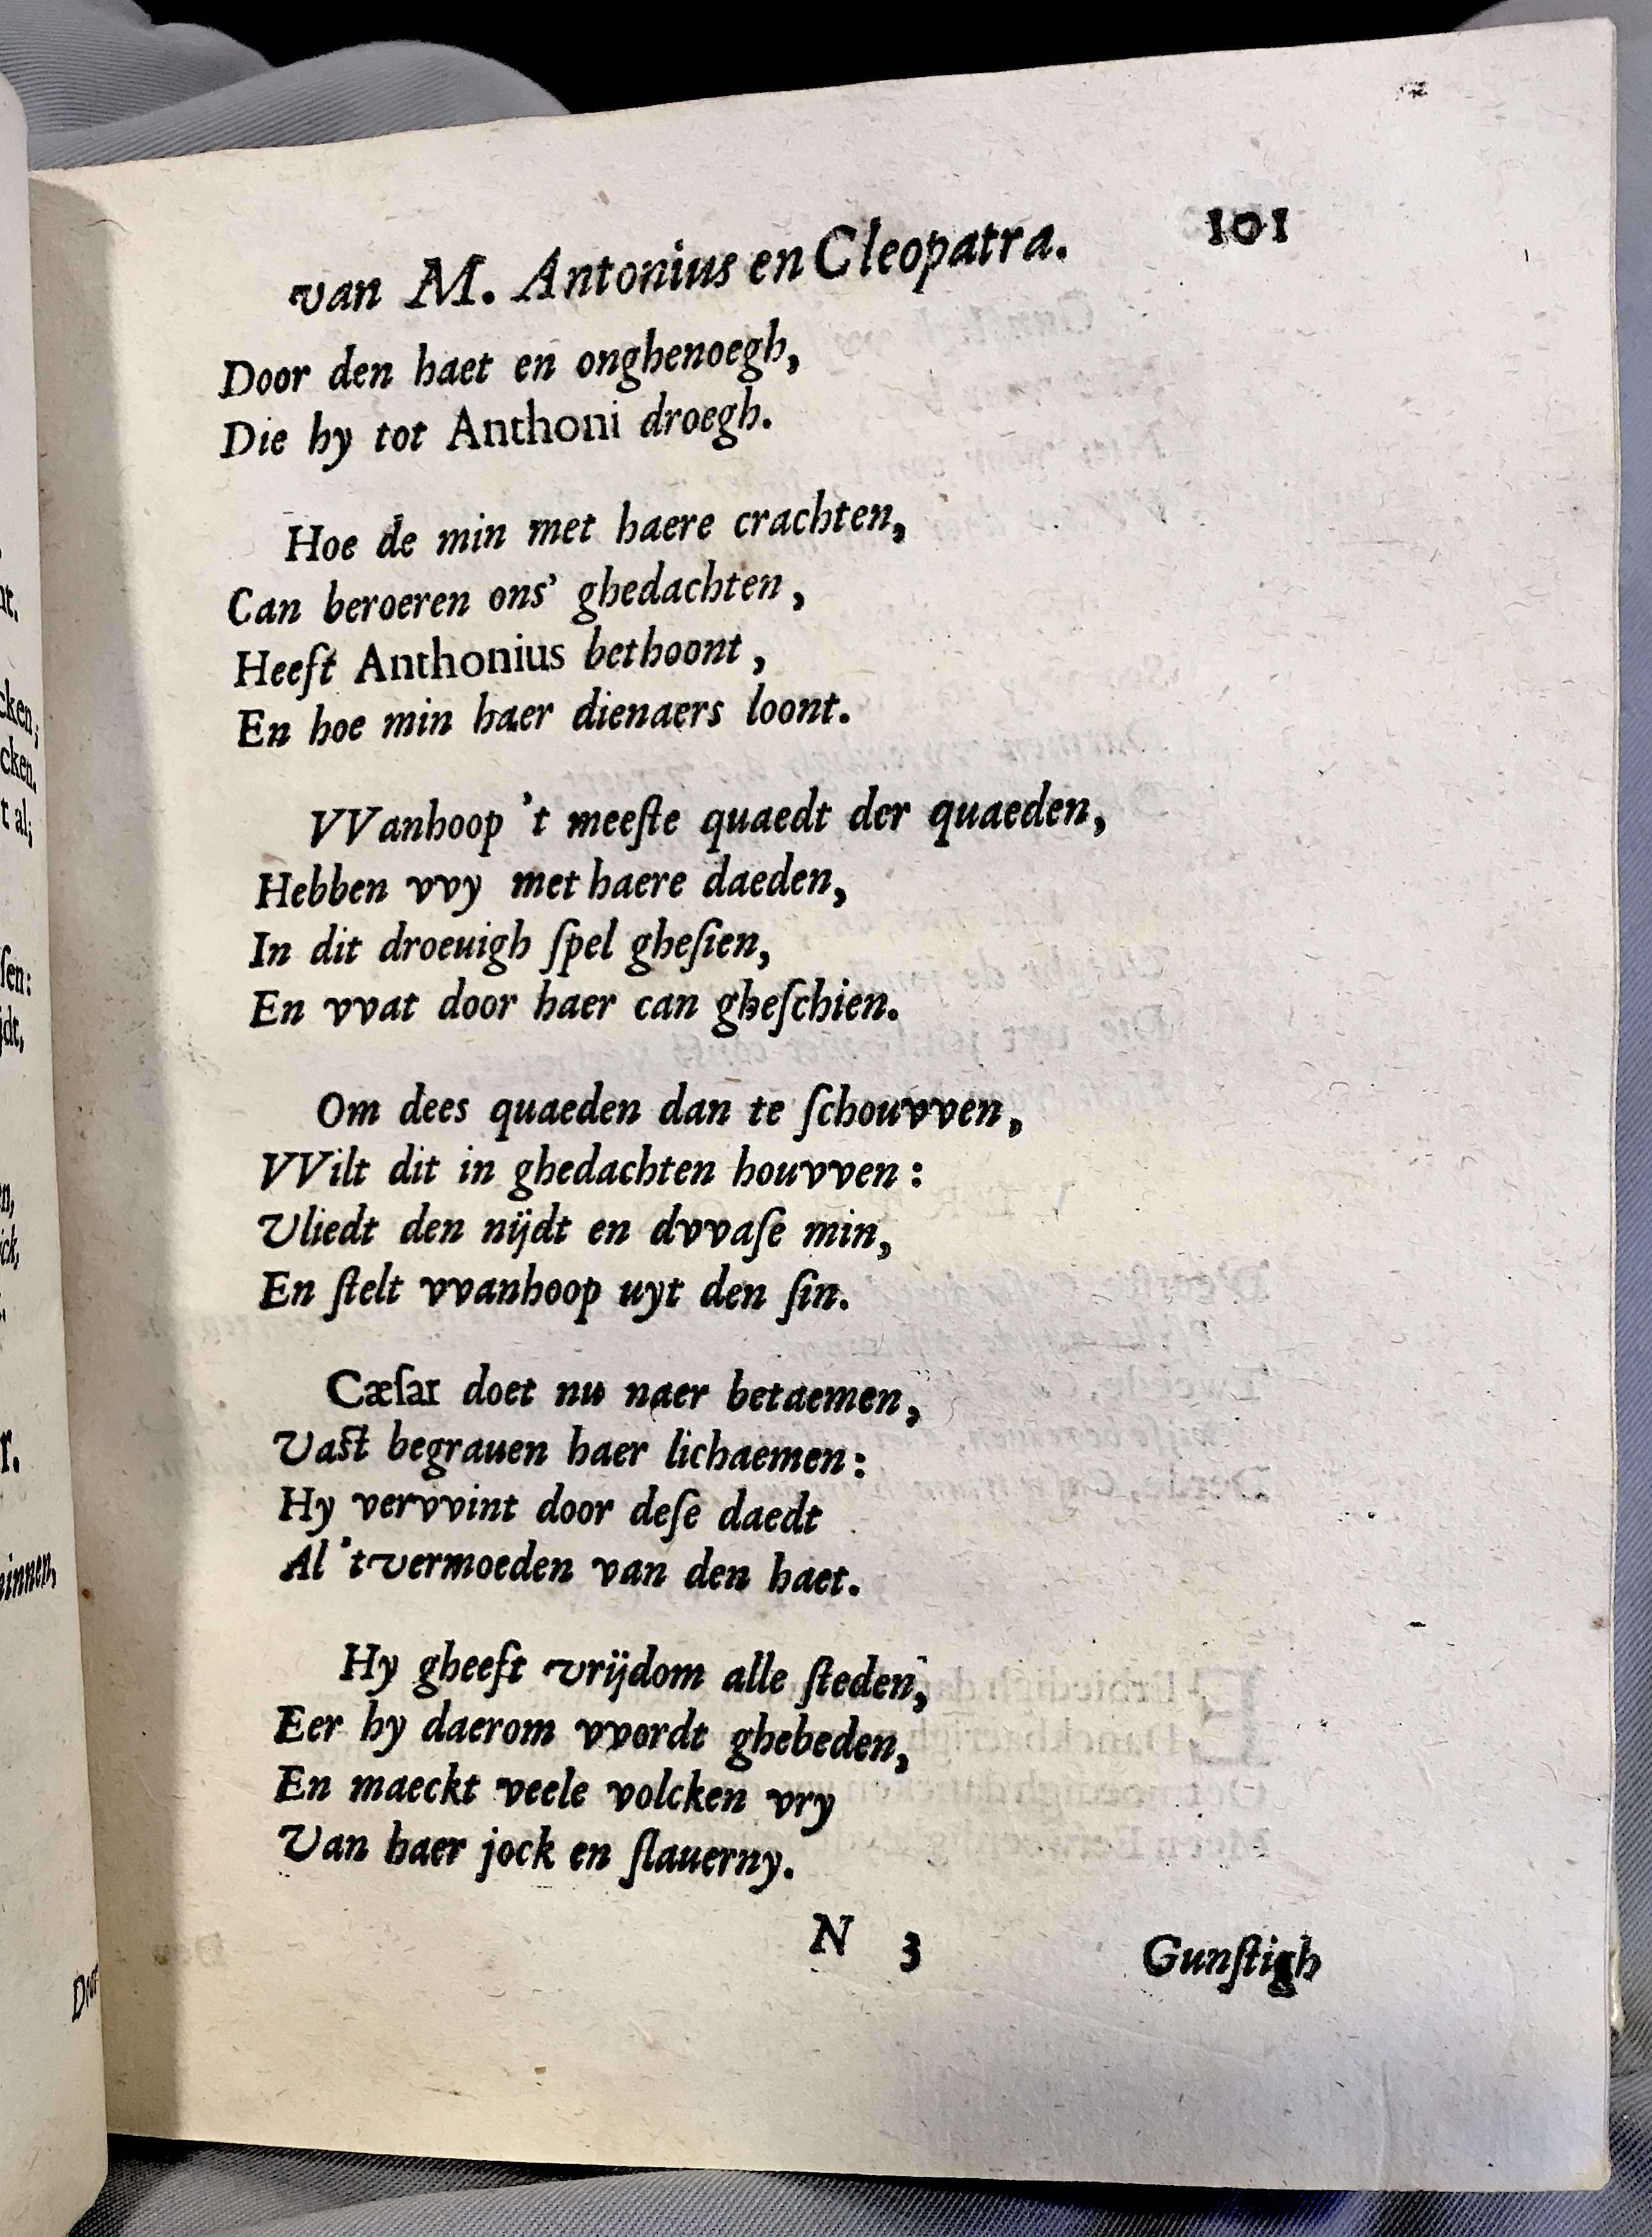 van M. Antonius en Cleopatra. 101
Door den haet en onghenoegh,
Die hy tot Anthoni droegh.
Hoe de min met haere crachten,
Can beroeren ons' ghedachten,
Heeſt Anthonius bethoont,
En hoe min haer dienaers loont.
VVanhoop 't meeſte quaedt der quaeden,
Hebben vvy met haere daeden,
In dit droeuigh ſpel gheſien,
En vvat door haer can gheſchien.
Om dees quaeden dan te ſchouvven,
VVilt dit in ghedachten houvven:
Vliedt den nijdt en dvvaſe min,
En ſtelt vvanhoop uyt den ſin.
Cæſar doet nu naer betaemen,
Vast begrauen haer lichaemen:
Hy vervvint door deſe daedt
Al 't vermoeden van den haet.
Hy gheeft vrijdom alle ſteden,
Eer hy daerom vvordt ghebeden,
En maeckt veele volcken vry
Van haer jock en ſlauerny.
N 3 Gunſtigh